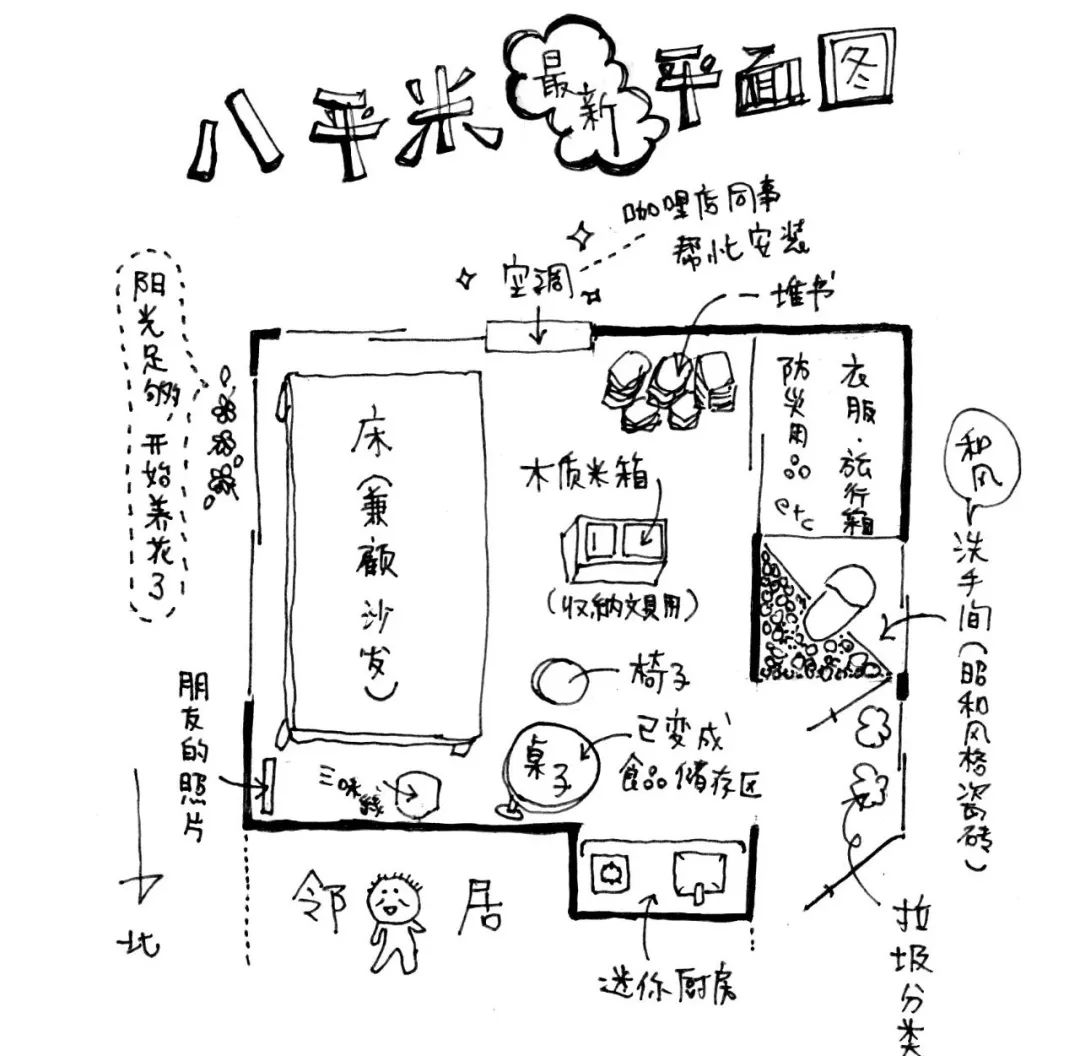 八平米最新平面图
咖哩店同事
帮忙安装
空调
一堆书
阳光足够，开始养花了
床（兼顾沙发）
衣服·旅行箱
防災用品
etc
木质米箱
（收纳文具用）
和风
洗手间（昭和风格瓷砖）
椅子
桌子
已变成
食品储存区
朋友的照片
三味線
邻居
北
迷你厨房
垃圾分类